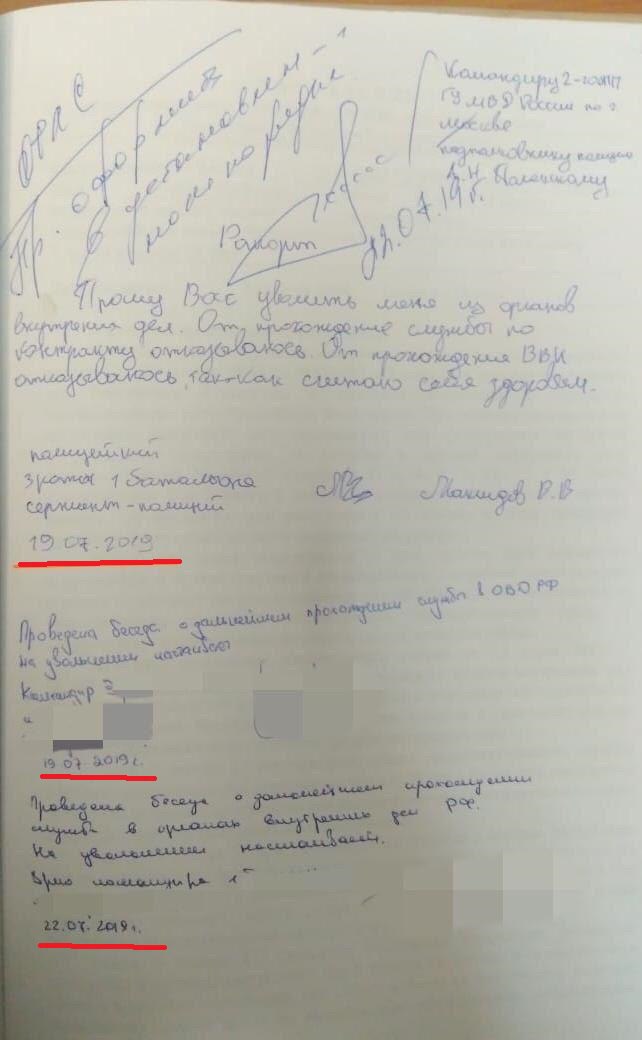 ОРЛС
Пр. оформить
в установлен-
ном порядке
Командиру 2-го
ГУ МВД России по г.
Москве
подполковнику полиции
22.07.19г.
Рапорт
Прошу Вас уволить меня из органов
внутрених дел. От прохождение службы по
контракту отказываюсь. От прохождения ВВК
отказываюсь, так-как считаю себя здоровым.
полицейский
3 роты 1 батальона
сержант полиции
В.В
19.07.2019
Проведена беседа о дальнейшем прохождении службы в ОВД РФ
на увольнении настаивает
Командир 3
19.07.2019 г.
Проведена беседа о дальнейшем прохождении
службы в органах внутренних дел РФ.
На увольнении настаивает.
Врио командира 1
22.07.2019 г.